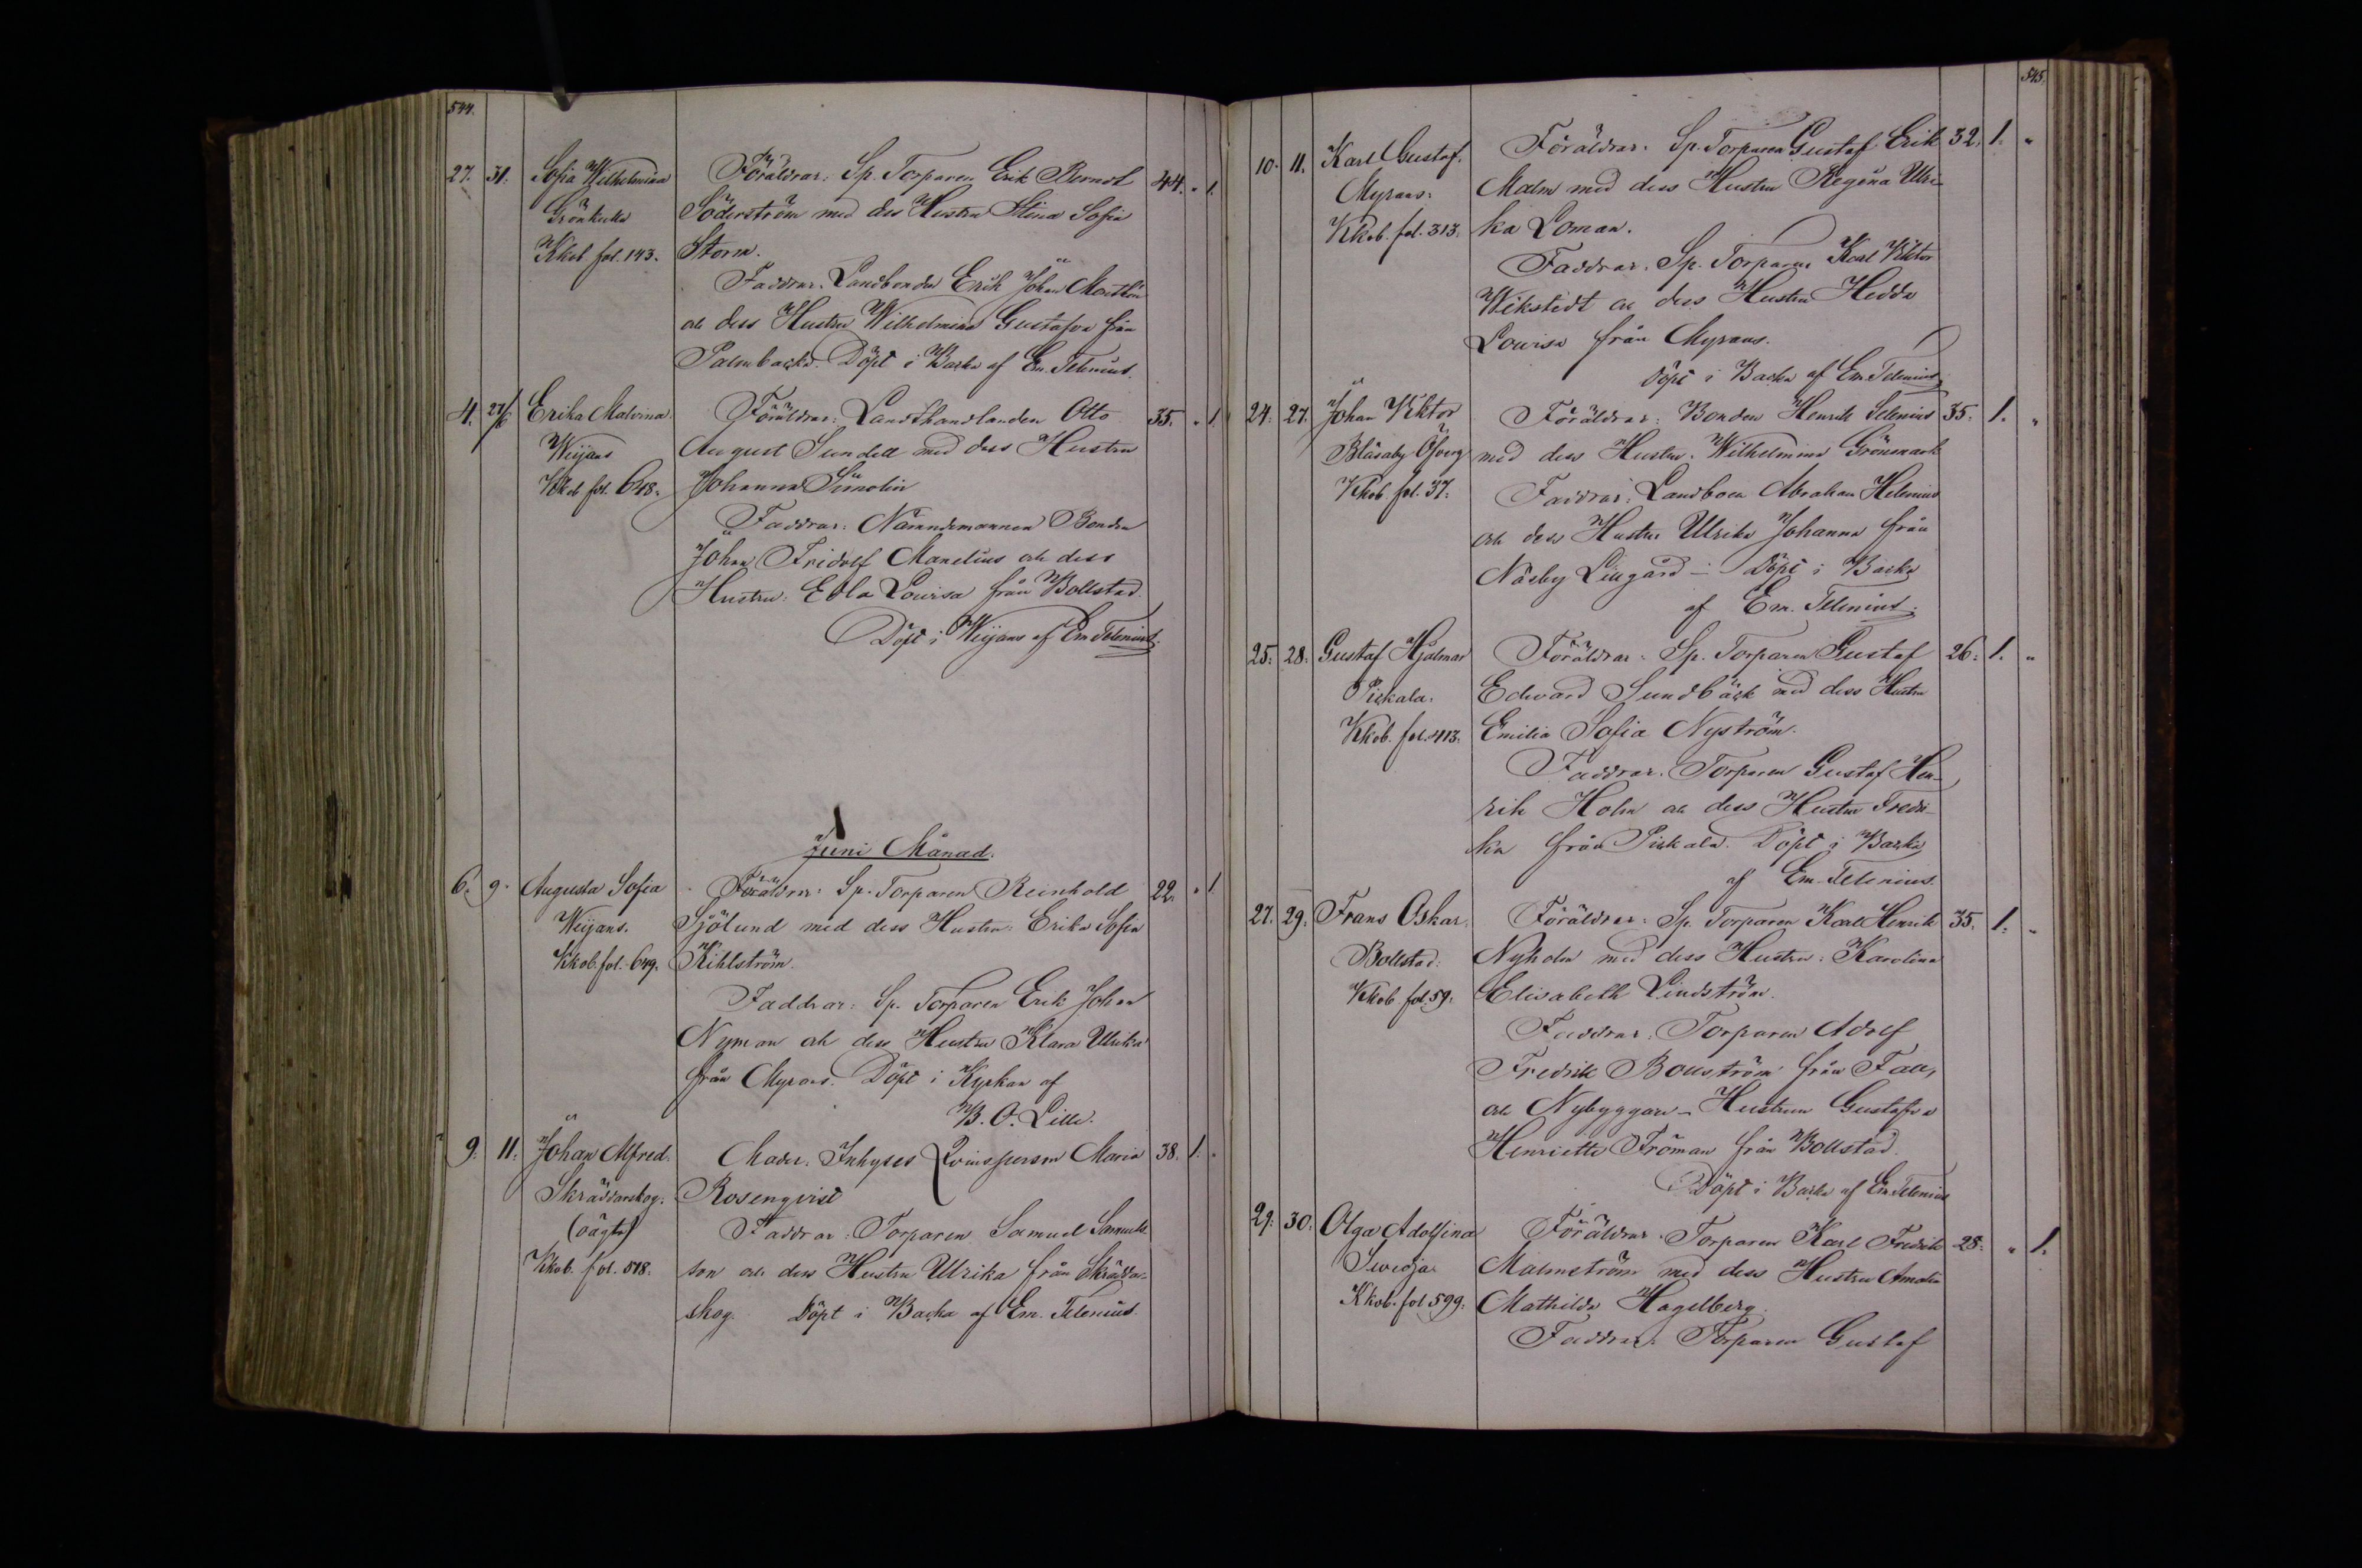 544.
27. 31. Sofia Wilhelmina Föräldrar: Sp. Torparen Erik Berndt 44. " 1.
Grönkulla Söderström med des Hustru Stina Sofia
Kkob fol. 143. Storm.
Faddrar: Landbonden Erik Johan
och dess Hustru Wilhelmina Gustafva från
Palmbacka. Döpt i Backa af Em. Telenius.
4. 27/6 Erika Malvina Föräldrar: Landthandlanden Otto 35. " 1
Weijans August Sundell med dess Hustru
Kkob fol. 648. Johanna Simolin
Faddrar: Nämndemannen Bonden
Johan Fridolf Manelius och dess
Hustru: Ebla Lovisa från Bollstad.
Döpt i Weijans af Em Telenius.
Juni Månad.
6. 9. Augusta Sofia Föräldrar: Sp. Torparen Reinhold 22. " 1
Weijans. Sjölund med dess Hustru: Erika Sofia
Kkob. fol. 649. Kihlström.
Faddrar: Sp. Torparen Erik Johan
Nyman och dess Hustru Klara Ulrika
från Myrans. Döpt i Kyrkan af
B. O. Lille.
9. 11. Johan Alfred. Moder: Inhyses Qvinsperson Maria 38. 1. "
Skräddarskog. Rosenqvist
(oägta) Faddrar: Torparen Samuel Samuels-
Kkob. fol. 518. son och dess Hustru Ulrika från Skräddar-
skog. Döpt i Backa af Em. Telenius.
545.
10. 11. Karl Gustaf. Föräldrar: Sp. Torparen Gustaf Erik 32. 1. "
Myrans: Malm med dess Hustru Regina Ulri-
Kkob. fol. 313. ka Loman.
Faddrar: Sp. Torparen Karl Viktor
Wikstedt och dess Hustru Hedda
Lovisa från Myrans.
Döpt i Backa af Em Telenius.
24. 27. Johan Viktor Föräldrar: Bonden Henrik Selenius 35. 1. "
Bläsaby Öfverg med dess Hustru: Wilhelmina Grönmark
Kkob. fol. 37. Faddrar: Landboen Abraham Helenius
och dess Hustru Ulrika Johanna från
Näsby Lillgård – Döpt i Backa
af Em. Telenius.
25. 28. Gustaf Hjalmar Föräldrar: Sp. Torparen Gustaf 26. 1. "
Piskala. Edward Sundbäck med dess Hustru
Kkob. fol. 413. Emilia Sofia Nyström.
Faddrar: Torparen Gustaf Hen-
rik Holm och dess Hustru Fredri-
ka från Piskala. Döpt i Backa
af Em. Telenius.
27. 29. Frans Oskar. Föräldrar: Sp. Torparen Karl Henrik 35. 1. "
Bollstad. Nyholm med dess Hustru: Karolina
Kkob fol. 59. Elisabeth Lindström.
Faddrar: Torparen Adolf
Fredrik Bouström från Fall,
och Nybyggare-Hustrun Gustafva
Henrietta Fröman från Bollstad.
Döpt i Backa af Em Telenius
29. 30. Olga Adolfina Föräldrar: Torparen Karl Fredrik 28. " 1.
Swedja Malmström med dess Hustru Amalia
Kkob. fol 599. Mathilda Hagelberg.
Faddrar: Torparen Gustaf